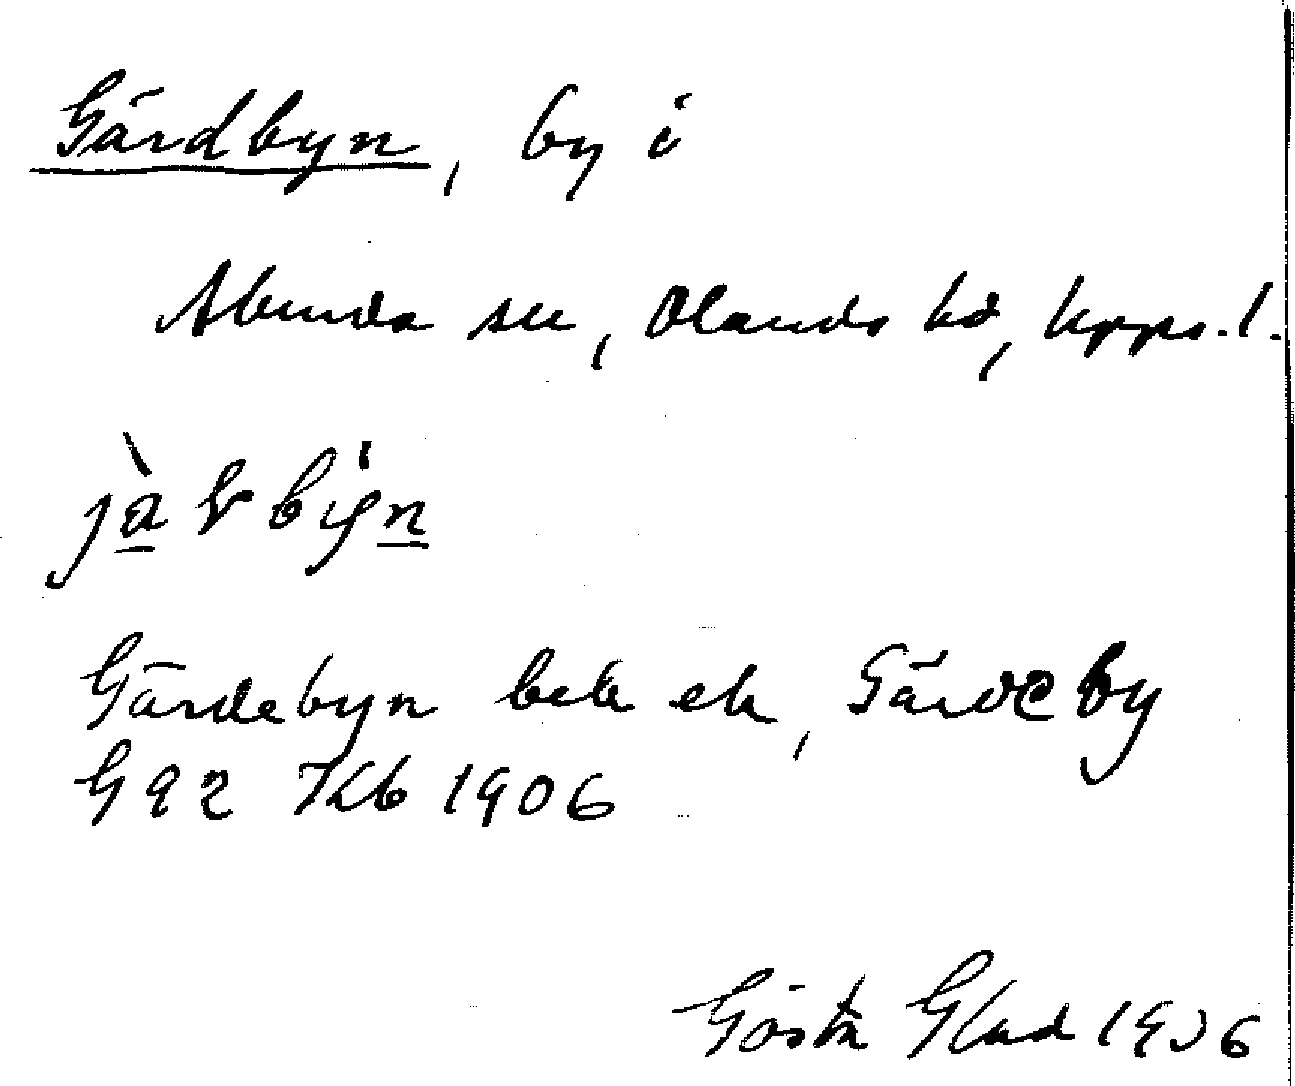 Gärdbyn, by i
Alunda sn, Olands hd, Upps. l.
Gärdebyn bek ek, Gärdeby
G 92 Kb 1906
Gösta Glad 1936